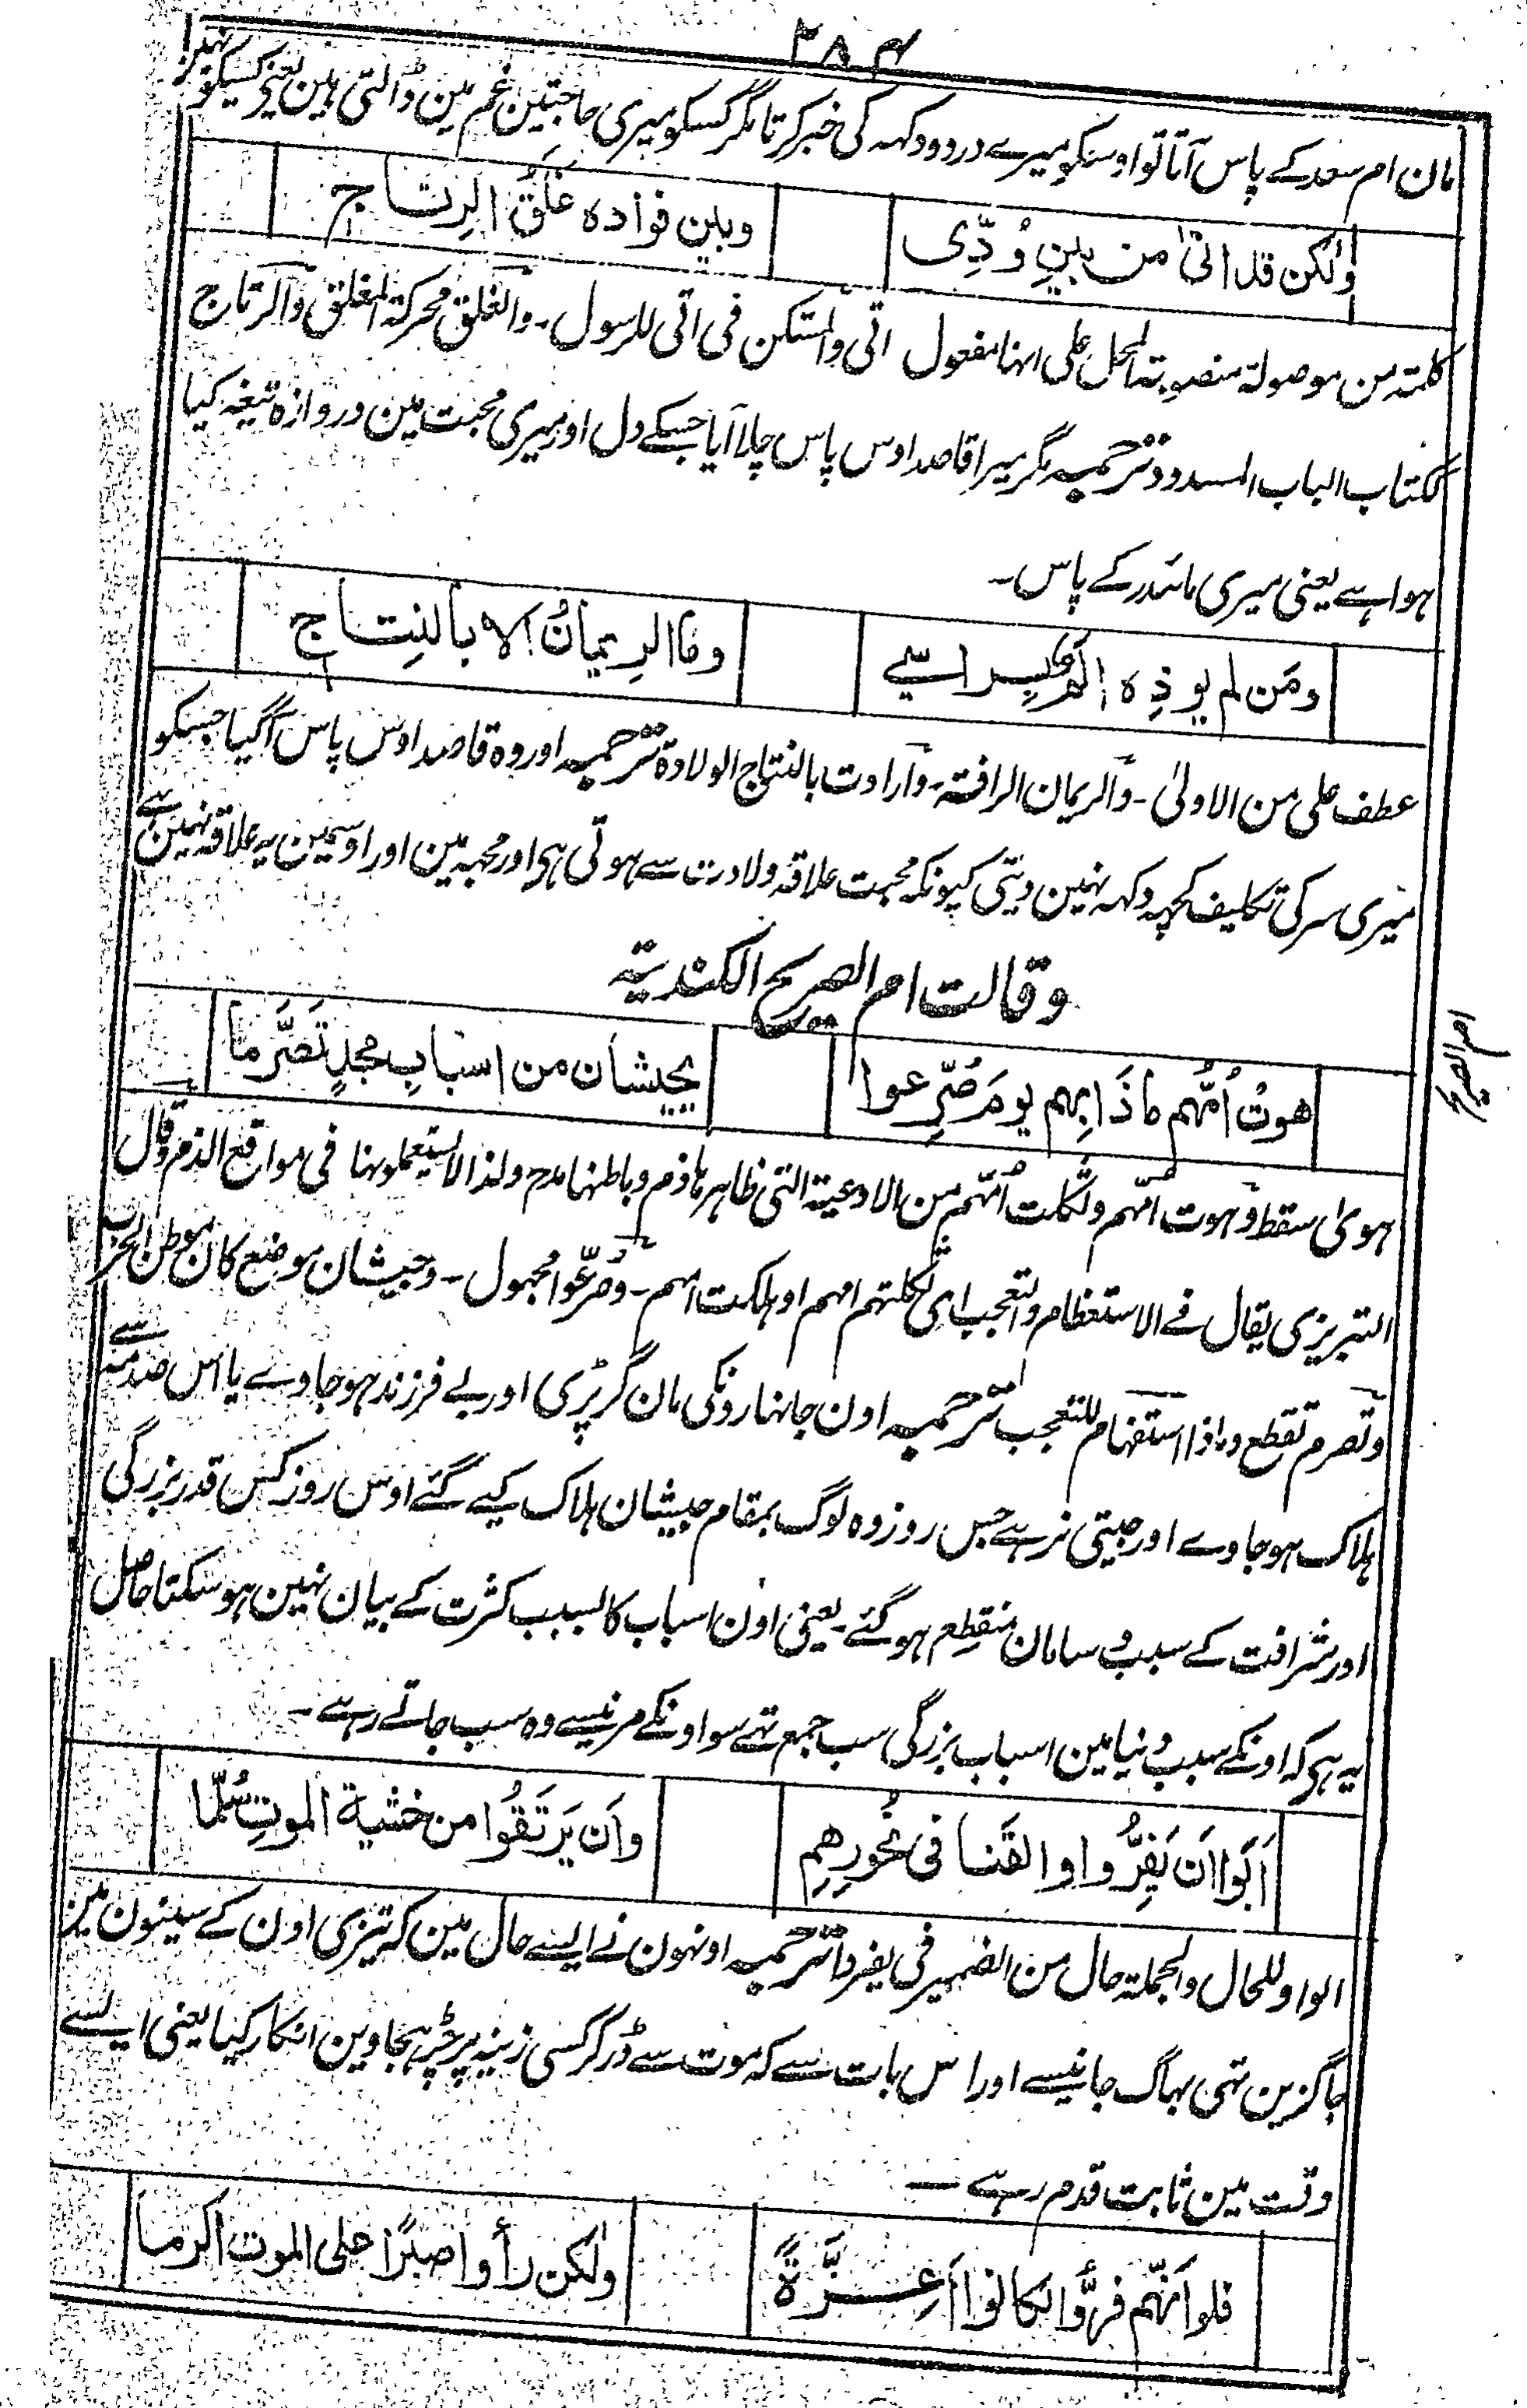 ۳۸۴
مان ام سعد کے پاس آتا تو اوسکو میرے درد و دکہہ کی خبر کرتا مگر کسکو میری حاجتین غم مین ڈالتی ہین یعنی کسیکو نہین
ولكن قد اتىٰ من بينِ وُدِّى وبين فواده غَلَقُ الرِتاج
كلمته من موصولة منصوبة المحل على انها مفعول اتى والمستكن فى اتى للرسول - والغلق محركة المغلق والرتاج
ككتاب الباب المسدود ترجمہ مگر میرا قاصد اوس پاس چلا آیا جسکے دل اور میری محبت مین دروازہ تیغہ کیا
ہوا ہے یعنی میری مائندر کے پاس -
ومَن لم يوذِه المٌ براسى وما الرِيمانُ الا بالنِتاج
عطف على من الاولىٰ - والريمان الرافة - وارادت بالنتاج الولادة ترجمہ اور وہ قاصد اوس پاس آگیا جسکو
میری سر کی تکلیف کچہہ دکہہ نہین دیتی کیونکہ محبت علاقۂ ولادت سے ہوتی ہی اور مجہہ مین اور اوسمین یہ علاقہ نہین ہے
وقالت ام الصريح الكندية
ام الصریح
هوتْ اُمُّهم ماذَا بِهم يومَ صُرِّعوا بجيشان من اسبابِ مجدٍ تَصَرَّما
هوىٰ سقط وهوت امّهم وثكلت اُمّهم من الادعية التى ظاهرها ذم وباطنها مدح ولذا لا يستعملونها فى مواقع الذم وقال
التبريزى يقال فے الاستعظام والتعجب اى ثكلتهم امهم او هلكت امهم - وصُرِّعُوا مجهول - وجيشان موضع كان موطن الحرب
وتصرم تقطع وماذا استفهام للتعجب ترجمہ اون جانہارونکی مان گر پڑی اور بے فرزند ہو جاوے یا اس صدمہ سے
ہلاک ہو جاوے اور جیتی نرہے جس روز وہ لوگ بمقام جیشان ہلاک کیے گئے اوس روز کس قدر بزرگی
اور شرافت کے سبب و سامان منقطع ہو گئے - یعنی اون اسباب کا بسبب کثرت کے بیان نہین ہو سکتا حاصل
یہ ہی کہ اونکے سبب دنیا مین اسباب بزرگی سب جمع تہے سو اونکے مرنیسے وہ سب جاتے رہے -
اَبَوا اَن يَفِرُّوا والقَنا فى نُحُورِهِم واَن يَرتَقُوا من خشية الموتِ سُلّما
الواو للحال والجملة حال من الضمير فى يفروا ترجمہ اونہون نے ایسے حال مین کہ تیزی اون کے سینون مین
جاگزین تہی بہاگ جانیسے اور اس بات سے کہ موت سے ڈر کر کسی زینہ پر چڑہجاوین انکار کیا یعنی ایسے
وقت مین ثابت قدم رہے -
فلو اَنّهم فرُّوا لكانوا اَعِزَّةً ولكن رأوا صبرًا على الموت اكرما